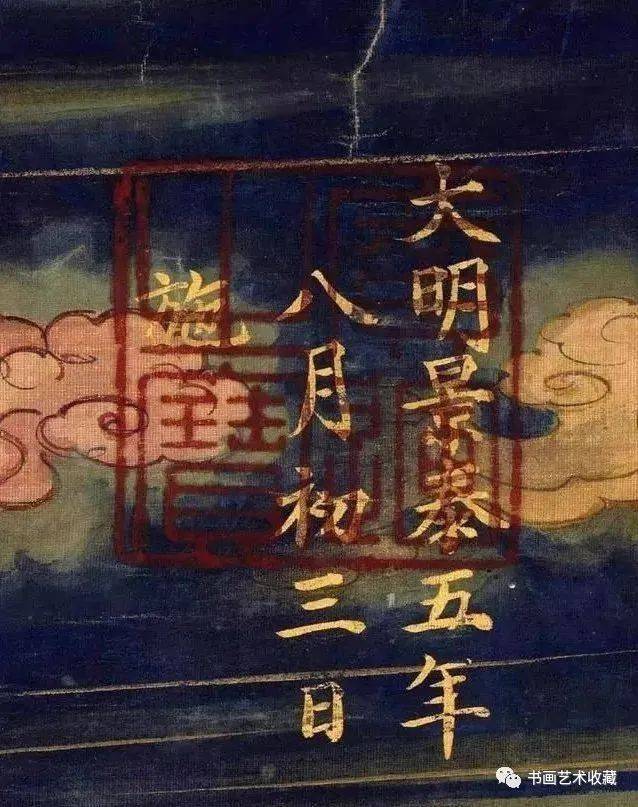 大明景泰五年
八月初三日
施
书画艺术收藏